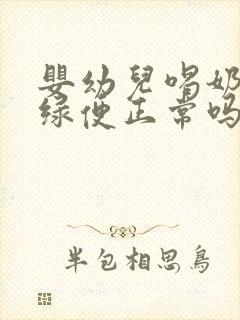 嬰幼兒喝奶
绿便正常吗
半包相思鳥